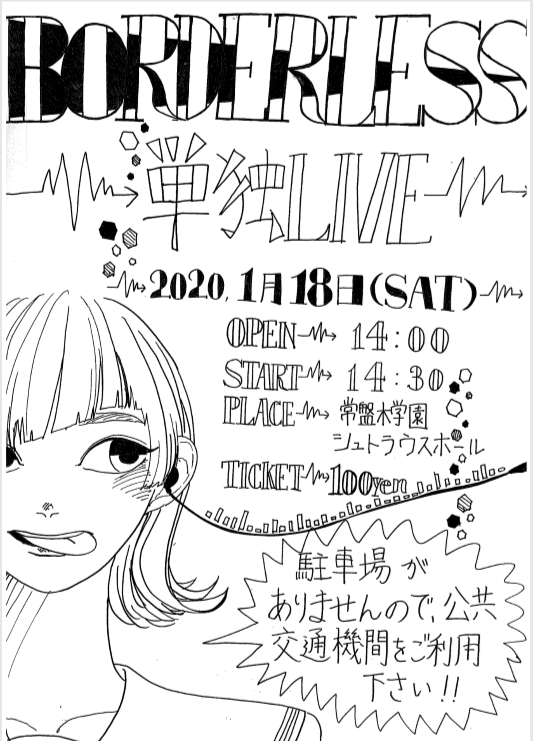 BORDERLESS
単独LIVE
2020.1月18日(SAT)
OPEN 14:00
START 14:30
PLACE 常盤木学園
シュトラウスホール
TICKET 100yen
駐車場が
ありませんので、公共
交通機間をご利用
下さい!!